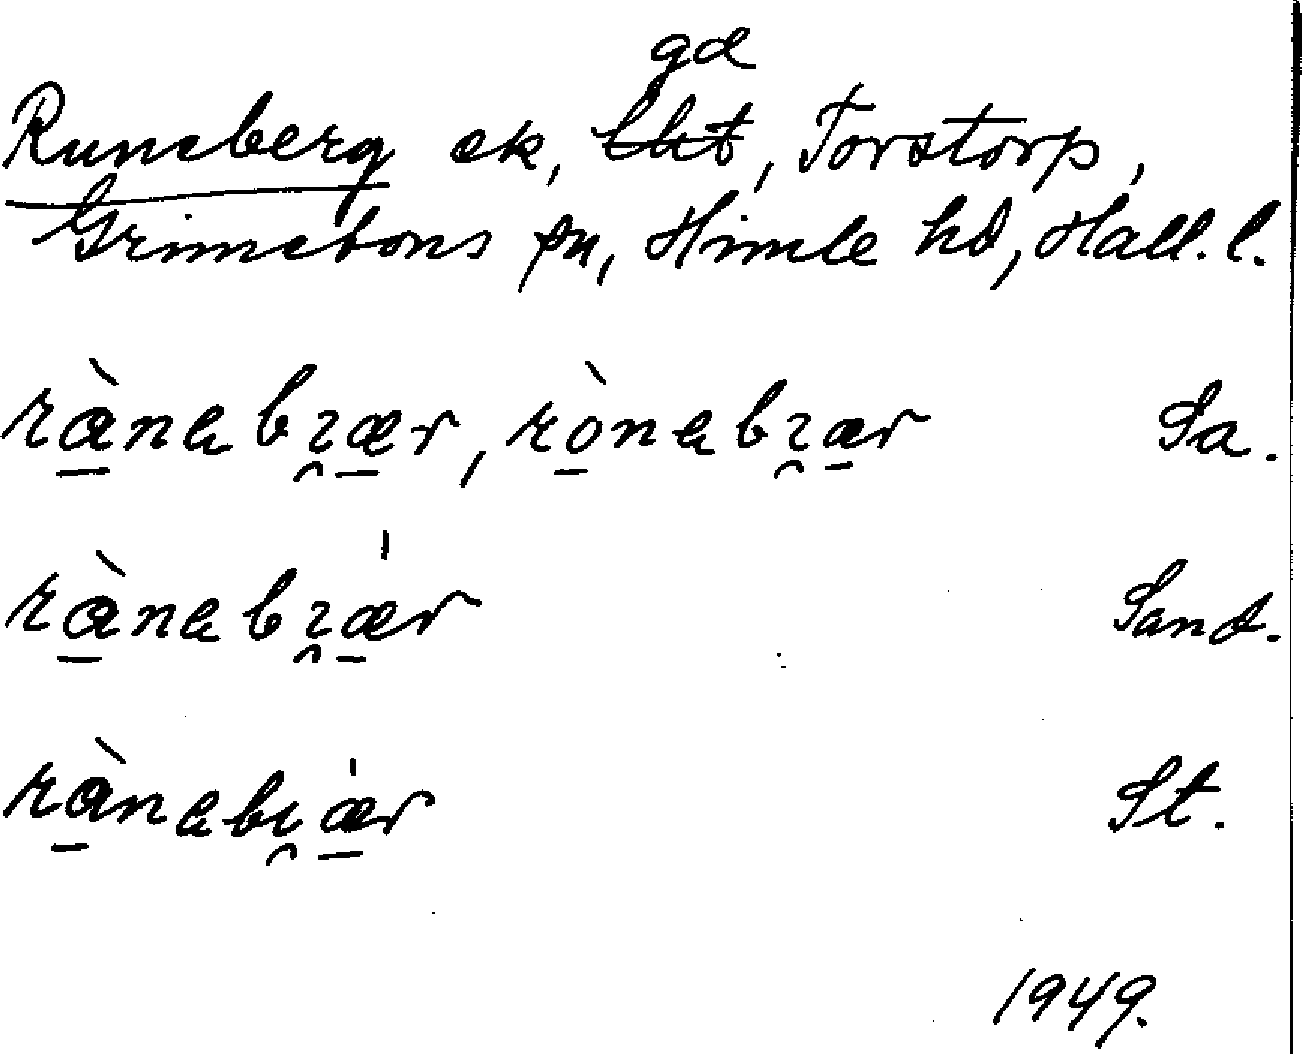 gd
Runeberg ek, lht, Torstorp,
Grimetons sn, Himle hd, Hall. l.
rànebɩ̯ær, rònebɩ̯ær Sa.
rànebɩ̯æ̍r Sand.
rànebɩ̯æ̍r St.
1949.